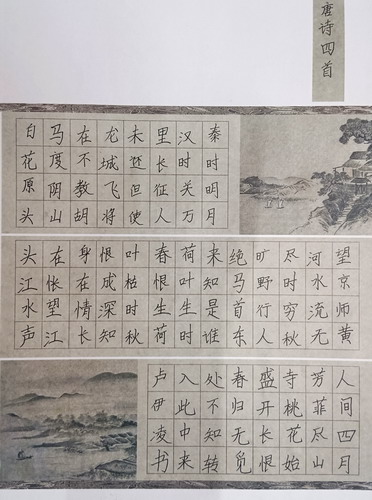 唐诗四首
秦时明月
汉时关万
里长征人
未还但使
龙城飞将
在不教胡
马度阴山
白花原头
望京师黄
河水流无
尽时穷秋
旷野行人
绝马首东
来知是谁
荷叶生时
春恨生荷
叶枯时秋
恨成深知
身在情长
在怅望江
头江水声
人间四月
芳菲尽山
寺桃花始
盛开长恨
春归无觅
处不知转
入此中来
卢伊凌书